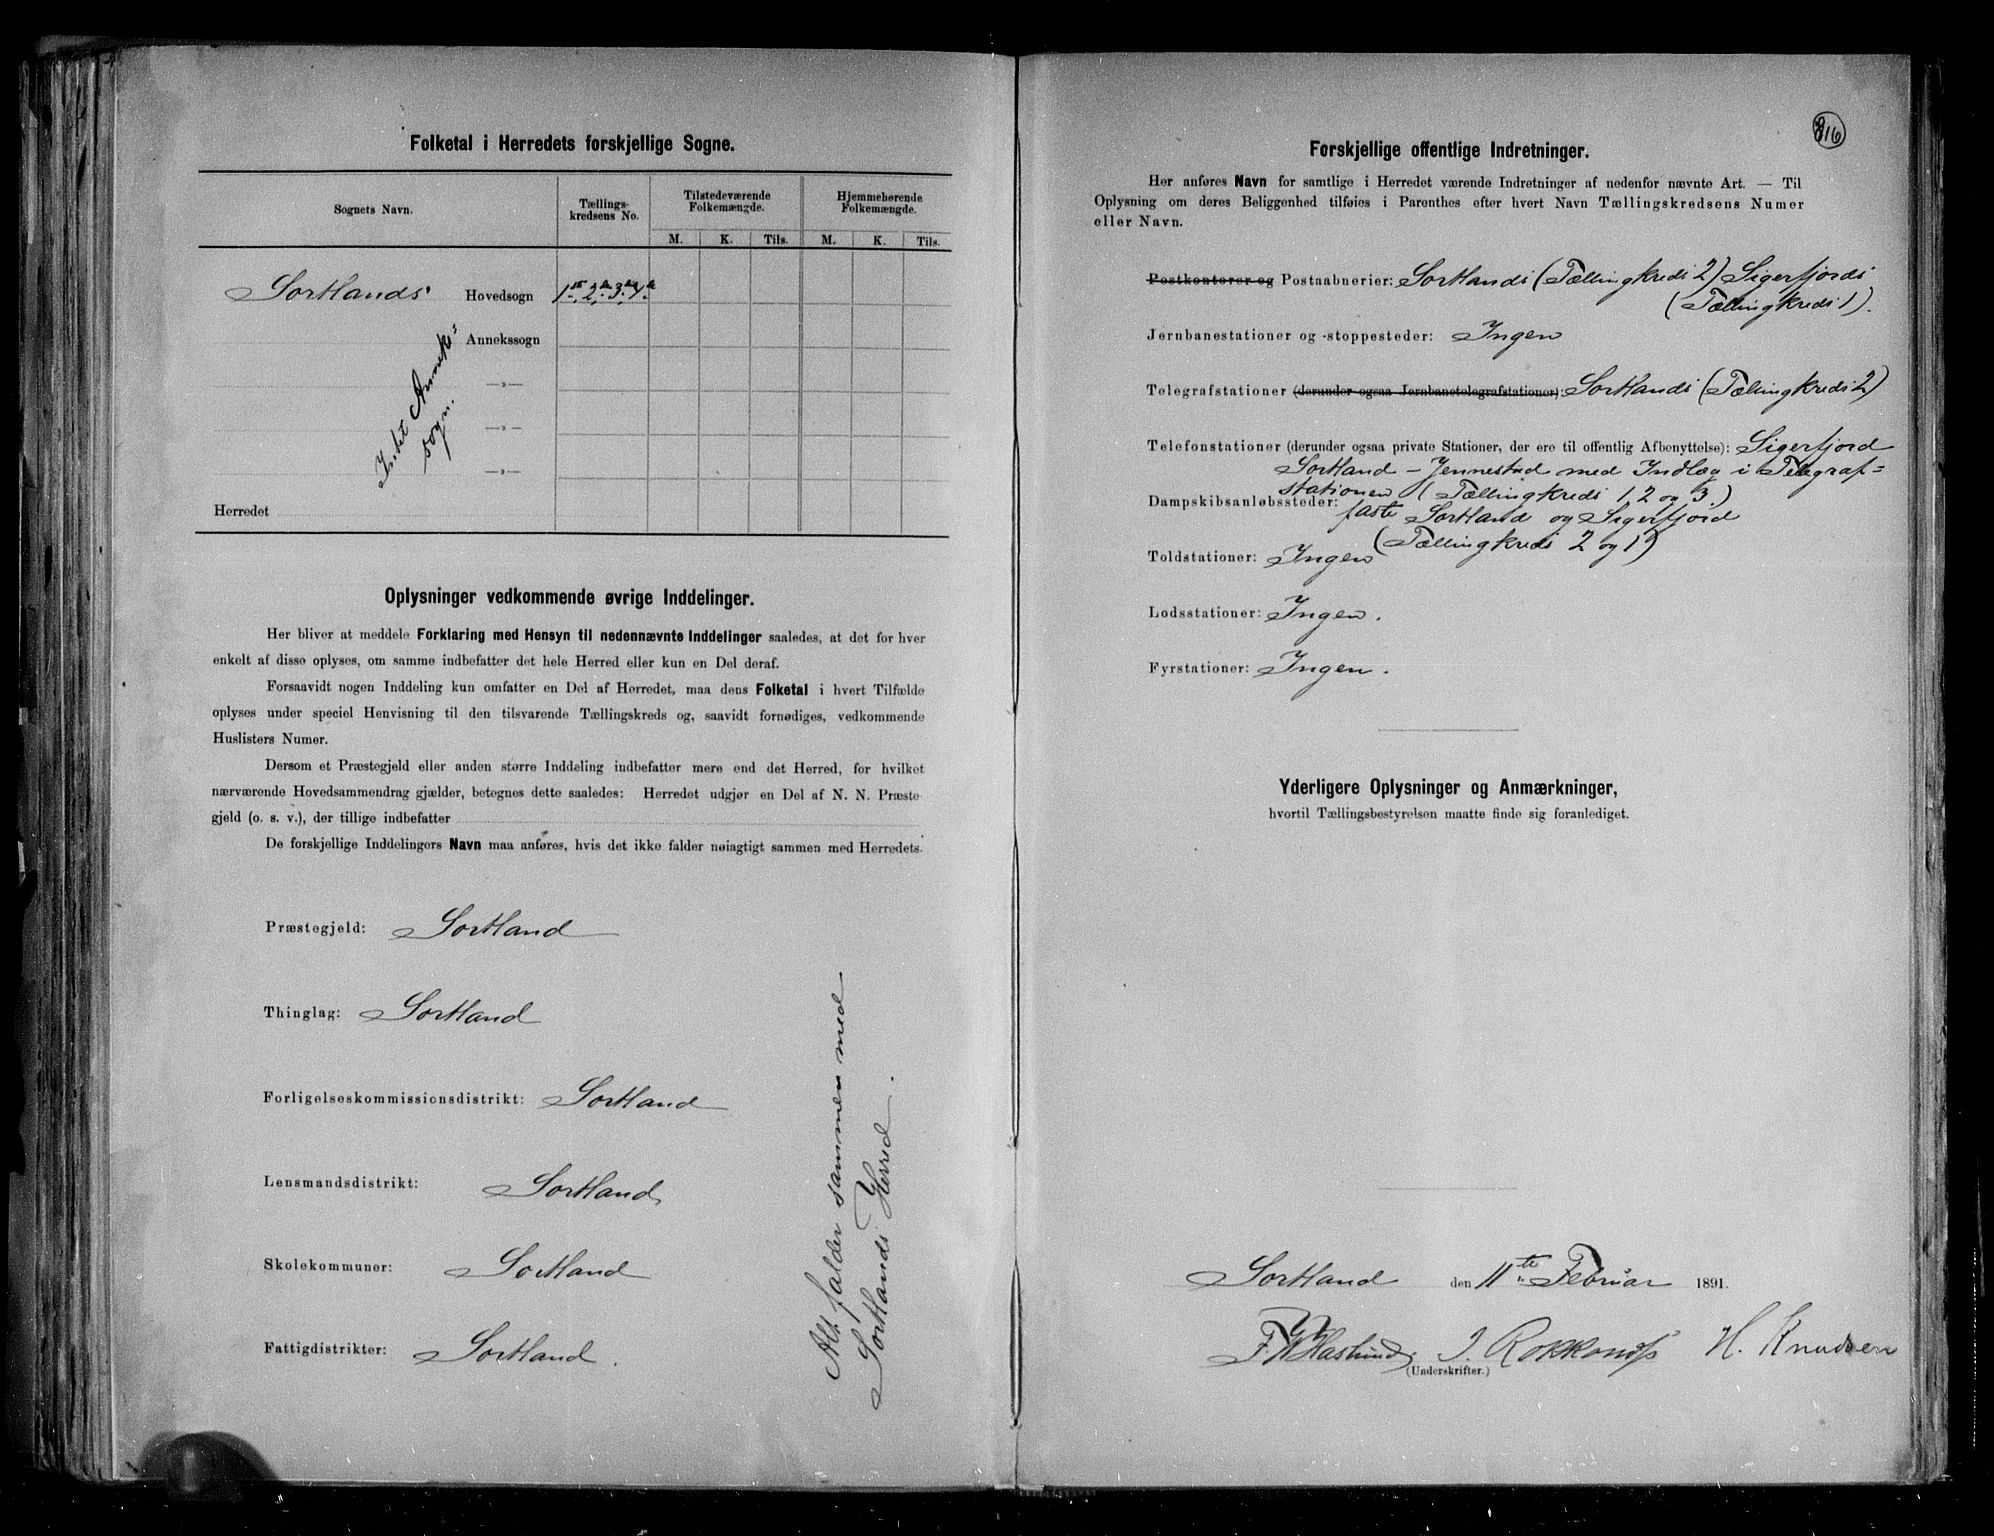 Folketal i Herredets forskjellige Sogne.
Sognets Navn.
Tællings-
kredsens No.
Tilstedeværende
Folkemængde.
Hjemmehørende
Folkemængde.
M. K. Tils. M. K. Tils.
Sortlands Hovedsogn
Annekssogn
—„—
—„—
—„—
Intet Anneks=
sogn.
Herredet
Oplysninger vedkommende øvrige Inddelinger.
Her bliver at meddele Forklaring med Hensyn til nedennævnte Inddelinger saaledes, at det for hver
enkelt af disse oplyses, om samme indbefatter det hele Herred eller kun en Del deraf.
Forsaavidt nogen Inddeling kun omfatter en Del af Herredet, maa dens Folketal i hvert Tilfælde
oplyses under speciel Henvisning til den tilsvarende Tællingskreds og, saavidt fornødiges, vedkommende
Huslisters Numer.
Dersom et Præstegjeld eller anden større Inddeling indbefatter mere end det Herred, for hvilket
nærværende Hovedsammendrag gjælder, betegnes dette saaledes: Herredet udgjør en Del af N. N. Præste-
gjeld (o. s. v.), der tillige indbefatter
De forskjellige Inddelingers Navn maa anføres, hvis det ikke falder nøiagtigt sammen med Herredets.
Præstegjeld: Sortland
Thinglag: Sortland
Forligelseskommissionsdistrikt: Sortland
Lensmandsdistrikt: Sortland
Skolekommuner: Sortland
Fattigdistrikter: Sortland.
Alt falder sammen med
Sortlands Herred.
Forskjellige offentlige Indretninger.
Her anføres Navn for samtlige i Herredet værende Indretninger af nedenfor nævnte Art. — Til
Oplysning om deres Beliggenhed tilføies i Parenthes efter hvert Navn Tællingskredsens Numer
eller Navn.
Postkontorer og Postaabnerier: Sortlands (Tællingkreds 2) Sigerfjords
(Tællingkreds 1).
Jernbanestationer og -stoppesteder: Ingen
Telegrafstationer (derunder ogsaa Jernbanetelegrafstationer): Sortlands (Tællingkreds 2)
Telefonstationer (derunder ogsaa private Stationer, der ere til offentlig Afbenyttelse): Sigerfjord
Sortland – Jennestad med Indlæg i Telegraf=
stationen (Tællingkreds 1, 2 og 3.)
Dampskibsanløbssteder: faste Sortland og Sigerfjord
(Tællingkreds 2 og 1)
Toldstationer: Ingen
Lodsstationer: Ingen.
Fyrstationer: Ingen.
Yderligere Oplysninger og Anmærkninger,
hvortil Tællingsbestyrelsen maatte finde sig foranlediget.
Sortland den 11te Februar 1891.
Haslund H. Knudsen
(Underskrifter.)